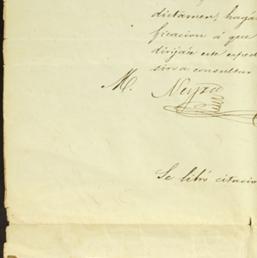 dictamen, hagá
ficacion á que
diriján este exped
sirva consultar
M. Neyra
Se libró citacio